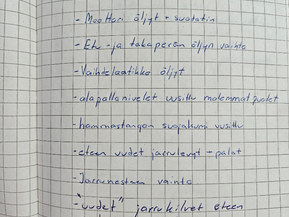 - Moottori öljyt + suodatin
- Etu -ja takaperän öljyn vaihto
- Vaihtelaatikko öljyt
- alapallonivelet uusittu molemmat puolet
- hammastangon suojakumi uusittu
- eteen uudet jarrulevyt + palat
- Jarrunesteen vaihto
- "uudet" jarrukilvet eteen